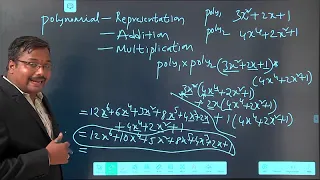 polynomial — Representation
— Addition
— Multiplication
poly1 3x²+2x+1
poly2 4x⁴+2x²+1
poly1 × poly2 = (3x²+2x+1) *
(4x⁴+2x²+1)
3x²(4x⁴+2x²+1)
+ 2x(4x⁴+2x²+1)
+ 1(4x⁴+2x²+1)
= 12x⁶+6x⁴+3x²+8x⁵+4x³+2x
+ 4x⁴+2x²+1
= 12x⁶+10x⁴+5x²+8x⁵+4x³+2x+1